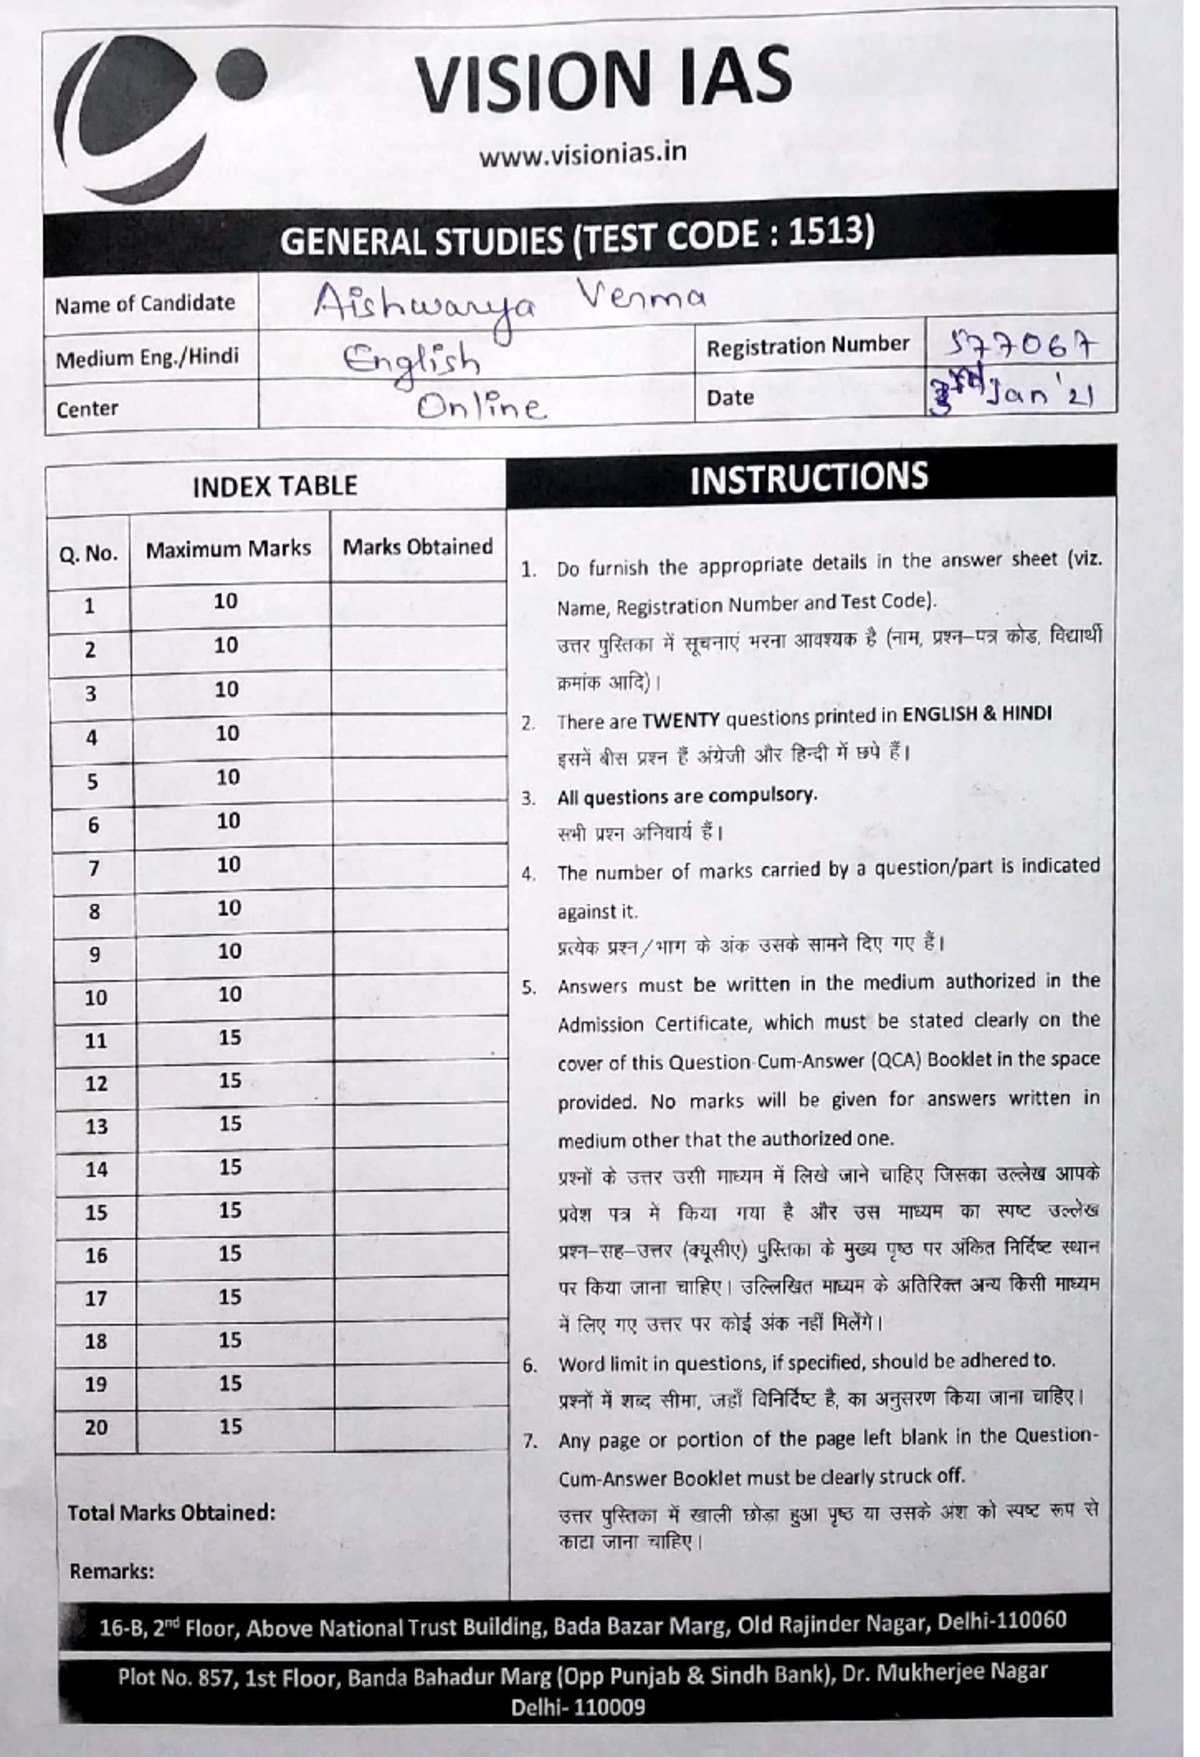 VISION IAS
www.visionias.in
GENERAL STUDIES (TEST CODE : 1513)
Name of Candidate Aishwarya Verma
Medium Eng./Hindi English Registration Number 577067
Center Online Date 3rd Jan'21
INDEX TABLE
Q. No. Maximum Marks Marks Obtained
1 10
2 10
3 10
4 10
5 10
6 10
7 10
8 10
9 10
10 10
11 15
12 15
13 15
14 15
15 15
16 15
17 15
18 15
19 15
20 15
Total Marks Obtained:
Remarks:
INSTRUCTIONS
1. Do furnish the appropriate details in the answer sheet (viz.
Name, Registration Number and Test Code).
उत्तर पुस्तिका में सूचनाएं भरना आवश्यक है (नाम, प्रश्न–पत्र कोड, विद्यार्थी
क्रमांक आदि)।
2. There are TWENTY questions printed in ENGLISH & HINDI
इसमें बीस प्रश्न हैं अंग्रेजी और हिन्दी में छपे हैं।
3. All questions are compulsory.
सभी प्रश्न अनिवार्य हैं।
4. The number of marks carried by a question/part is indicated
against it.
प्रत्येक प्रश्न/भाग के अंक उसके सामने दिए गए हैं।
5. Answers must be written in the medium authorized in the
Admission Certificate, which must be stated clearly on the
cover of this Question-Cum-Answer (QCA) Booklet in the space
provided. No marks will be given for answers written in
medium other that the authorized one.
प्रश्नों के उत्तर उसी माध्यम में लिखे जाने चाहिए जिसका उल्लेख आपके
प्रवेश पत्र में किया गया है और उस माध्यम का स्पष्ट उल्लेख
प्रश्न–सह–उत्तर (क्यूसीए) पुस्तिका के मुख्य पृष्ठ पर अंकित निर्दिष्ट स्थान
पर किया जाना चाहिए। उल्लिखित माध्यम के अतिरिक्त अन्य किसी माध्यम
में लिए गए उत्तर पर कोई अंक नहीं मिलेंगे।
6. Word limit in questions, if specified, should be adhered to.
प्रश्नों में शब्द सीमा, जहाँ विनिर्दिष्ट है, का अनुसरण किया जाना चाहिए।
7. Any page or portion of the page left blank in the Question-
Cum-Answer Booklet must be clearly struck off.
उत्तर पुस्तिका में खाली छोड़ा हुआ पृष्ठ या उसके अंश को स्पष्ट रूप से
काटा जाना चाहिए।
16-B, 2nd Floor, Above National Trust Building, Bada Bazar Marg, Old Rajinder Nagar, Delhi-110060
Plot No. 857, 1st Floor, Banda Bahadur Marg (Opp Punjab & Sindh Bank), Dr. Mukherjee Nagar
Delhi- 110009